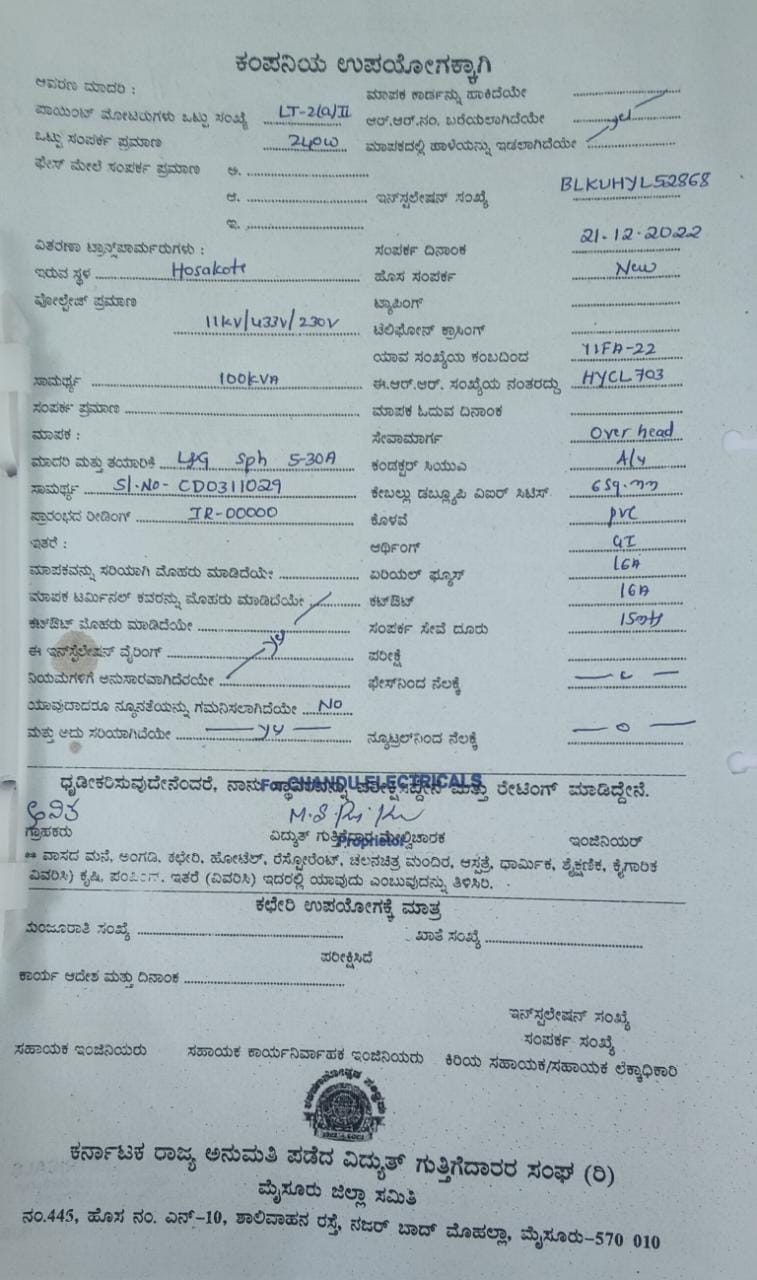 ಕಂಪನಿಯ ಉಪಯೋಗಕ್ಕಾಗಿ
ಆವರಣ ಮಾದರಿ : ಮಾಪಕ ಕಾರ್ಡನ್ನು ಹಾಕಿದೆಯೇ
ಪಾಯಿಂಟ್ ಮೋಟರುಗಳು ಒಟ್ಟು ಸಂಖ್ಯೆ LT-2(a)II ಆರ್.ಆರ್.ನಂ. ಬರೆಯಲಾಗಿದೆಯೇ
ಒಟ್ಟು ಸಂಪರ್ಕ ಪ್ರಮಾಣ 240W ಮಾಪಕದಲ್ಲಿ ಹಾಳೆಯನ್ನು ಇಡಲಾಗಿದೆಯೇ
ಫೇಸ್ ಮೇಲೆ ಸಂಪರ್ಕ ಪ್ರಮಾಣ ಅ.
ಆ. ಇನ್‌ಸ್ಟಲೇಷನ್ ಸಂಖ್ಯೆ BLKUHYL52868
ಇ.
ವಿತರಣಾ ಟ್ರಾನ್ಸ್‌ಫಾರ್ಮರುಗಳು : ಸಂಪರ್ಕ ದಿನಾಂಕ 21-12-2022
ಇರುವ ಸ್ಥಳ Hosakote ಹೊಸ ಸಂಪರ್ಕ New
ವೋಲ್ಟೇಜ್ ಪ್ರಮಾಣ ಟ್ಯಾಪಿಂಗ್
11KV/433V/230V ಟೆಲಿಫೋನ್ ಕ್ರಾಸಿಂಗ್
ಯಾವ ಸಂಖ್ಯೆಯ ಕಂಬದಿಂದ 11FA-22
ಸಾಮರ್ಥ್ಯ 100KVA ಈ.ಆರ್.ಆರ್. ಸಂಖ್ಯೆಯ ನಂತರದ್ದು HYCL703
ಸಂಪರ್ಕ ಪ್ರಮಾಣ ಮಾಪಕ ಓದುವ ದಿನಾಂಕ
ಮಾಪಕ : ಸೇವಾಮಾರ್ಗ Over head
ಮಾದರಿ ಮತ್ತು ತಯಾರಿಕೆ L&G Sph 5-30A ಕಂಡಕ್ಟರ್ ಸಿಯುಎ A/y
ಸಾಮರ್ಥ್ಯ Sl.No- CD0311029 ಕೇಬಲ್ಲು ಡಬ್ಲ್ಯೂಪಿ ವಿಐರ್ ಸಿಟಿಸ್ 6sq.mm
ಪ್ರಾರಂಭದ ರೀಡಿಂಗ್ IR-00000 ಕೊಳವೆ pvc
ಇತರೆ : ಆರ್ಥಿಂಗ್ GI
ಮಾಪಕವನ್ನು ಸರಿಯಾಗಿ ಮೊಹರು ಮಾಡಿದೆಯೇ ಏರಿಯಲ್ ಫ್ಯೂಸ್ 16A
ಮಾಪಕ ಟರ್ಮಿನಲ್ ಕವರನ್ನು ಮೊಹರು ಮಾಡಿದೆಯೇ ಕಟ್‌ಔಟ್ 16A
ಕಟ್‌ಔಟ್ ಮೊಹರು ಮಾಡಿದೆಯೇ ಸಂಪರ್ಕ ಸೇವೆ ದೂರು
ಈ ಇನ್‌ಸ್ಟಲೇಷನ್ ವೈರಿಂಗ್ ಪರೀಕ್ಷೆ
ನಿಯಮಗಳಿಗೆ ಅನುಸಾರವಾಗಿದೆಯೇ ಫೇಸ್‌ನಿಂದ ನೆಲಕ್ಕೆ
ಯಾವುದಾದರೂ ನ್ಯೂನತೆಯನ್ನು ಗಮನಿಸಲಾಗಿದೆಯೇ No
ಮತ್ತು ಅದು ಸರಿಯಾಗಿದೆಯೇ ನ್ಯೂಟ್ರಲ್‌ನಿಂದ ನೆಲಕ್ಕೆ — 0 —
For CHANDU ELECTRICALS
ಧೃಡೀಕರಿಸುವುದೇನೆಂದರೆ, ನಾನು ಸ್ಥಾವರವನ್ನು ಪರೀಕ್ಷಿಸಿದ್ದೇನೆ ಮತ್ತು ರೇಟಿಂಗ್ ಮಾಡಿದ್ದೇನೆ.
ಗ್ರಾಹಕರು ವಿದ್ಯುತ್ ಗುತ್ತಿಗೆದಾರ ಮೇಲ್ವಿಚಾರಕ ಇಂಜಿನಿಯರ್
Proprietor
** ವಾಸದ ಮನೆ, ಅಂಗಡಿ, ಕಛೇರಿ, ಹೋಟೆಲ್, ರೆಸ್ಟೋರೆಂಟ್, ಚಲನಚಿತ್ರ ಮಂದಿರ, ಆಸ್ಪತ್ರೆ, ಧಾರ್ಮಿಕ, ಶೈಕ್ಷಣಿಕ, ಕೈಗಾರಿಕ
ವಿವರಿಸಿ) ಕೃಷಿ, ಪಂಪಿಂಗ್, ಇತರೆ (ವಿವರಿಸಿ) ಇದರಲ್ಲಿ ಯಾವುದು ಎಂಬುವುದನ್ನು ತಿಳಿಸಿರಿ.
ಕಛೇರಿ ಉಪಯೋಗಕ್ಕೆ ಮಾತ್ರ
ಮಂಜೂರಾತಿ ಸಂಖ್ಯೆ ಖಾತೆ ಸಂಖ್ಯೆ
ಪರೀಕ್ಷಿಸಿದೆ
ಕಾರ್ಯ ಆದೇಶ ಮತ್ತು ದಿನಾಂಕ
ಇನ್‌ಸ್ಟಲೇಷನ್ ಸಂಖ್ಯೆ
ಸಂಪರ್ಕ ಸಂಖ್ಯೆ
ಸಹಾಯಕ ಇಂಜಿನಿಯರು ಸಹಾಯಕ ಕಾರ್ಯನಿರ್ವಾಹಕ ಇಂಜಿನಿಯರು ಕಿರಿಯ ಸಹಾಯಕ/ಸಹಾಯಕ ಲೆಕ್ಕಾಧಿಕಾರಿ
ಕರ್ನಾಟಕ ರಾಜ್ಯ ಅನುಮತಿ ಪಡೆದ ವಿದ್ಯುತ್ ಗುತ್ತಿಗೆದಾರರ ಸಂಘ (ರಿ)
ಮೈಸೂರು ಜಿಲ್ಲಾ ಸಮಿತಿ
ನಂ.445, ಹೊಸ ನಂ. ಎನ್-10, ಶಾಲಿವಾಹನ ರಸ್ತೆ, ನಜರ್ ಬಾದ್ ಮೊಹಲ್ಲಾ, ಮೈಸೂರು-570 010